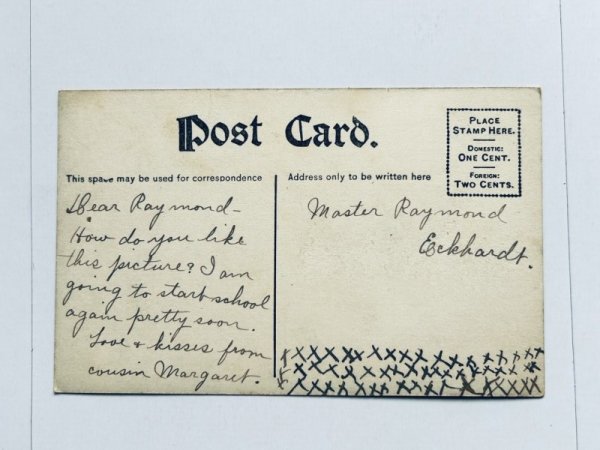 Post Card.
PLACE
STAMP HERE.
DOMESTIC:
ONE CENT.
FOREIGN:
TWO CENTS.
This space may be used for correspondence
Address only to be written here
Dear Raymond-
How do you like
this picture? I am
going to start school
again pretty soon.
Love + kisses from
cousin Margaret.
Master Raymond
Eckhardt.